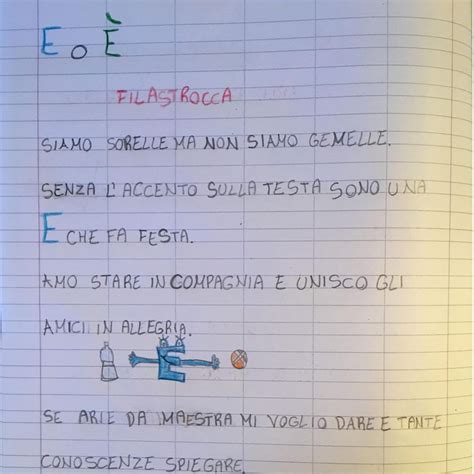 E O È
FILASTROCCA
SIAMO SORELLE MA NON SIAMO GEMELLE.
SENZA L'ACCENTO SULLA TESTA SONO UNA
E CHE FA FESTA.
AMO STARE IN COMPAGNIA E UNISCO GLI
AMICI IN ALLEGRIA.
E
SE ARIE DA MAESTRA MI VOGLIO DARE E TANTE
CONOSCENZE SPIEGARE